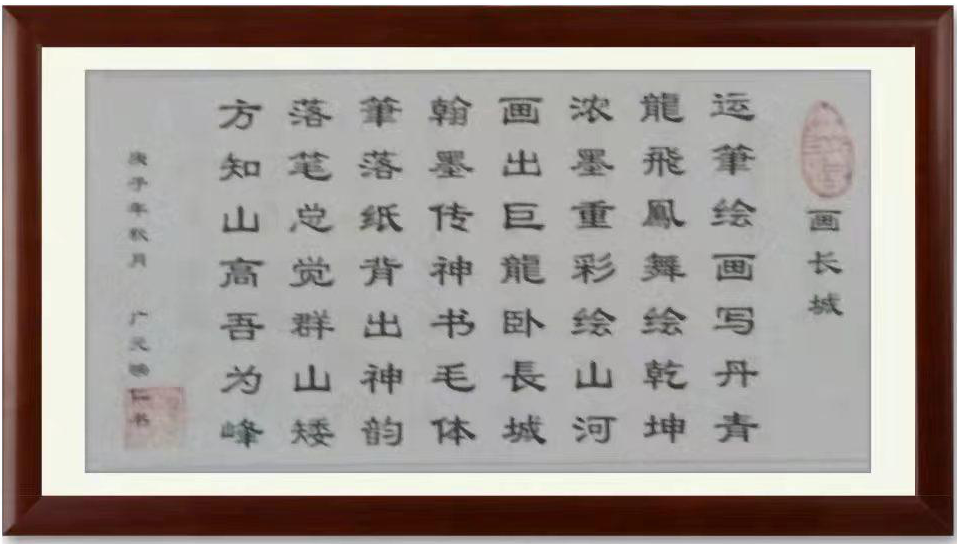 画长城
运筆绘画写丹青
龍飛鳳舞绘乾坤
浓墨重彩绘山河
画出巨龍卧長城
翰墨传神书毛体
筆落纸背出神韵
落笔总觉群山矮
方知山高吾为峰
庚子年秋月 广元 仁书